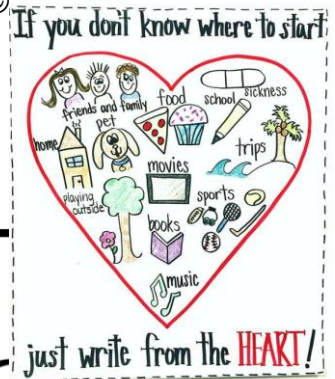 If you don't know where to start
friends and family
food
school
sickness
home
pet
trips
movies
playing
outside
sports
books
music
just write from the HEART!